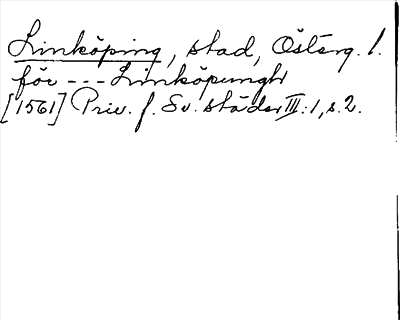 Linköping, stad, Österg. l.
för --- Linköpungh
[1561] Priv. f. Sv. städer III:1, s. 2.